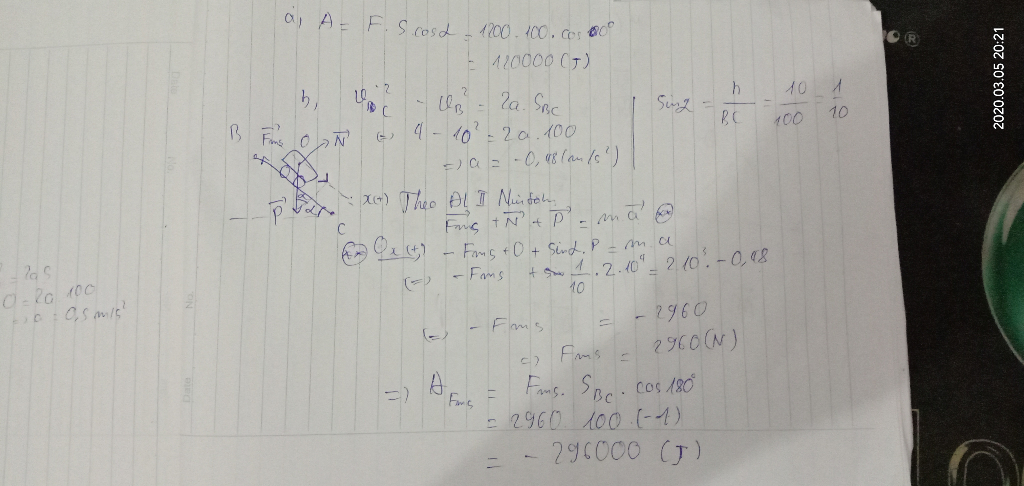 a, A = F. S cosα = 1200.100.cos 0°
= 120000 (J)
b, v_C² - v_B² = 2a. S_BC
(=) 4 - 10² = 2a.100
=) a = -0,48(m/s²)
sinα = h/BC = 10/100 = 1/10
B Fms O N
P α C
x(+) Theo ĐL II Niutơn
Fms + N + P = m a (**)
(**) Ox(+) - Fms + 0 + sinα. P = m. a
(=) - Fms + 1/10 . 2.10⁴ = 2.10³. -0,48
(=) - Fms = - 2960
=) Fms = 2960(N)
=) A_Fms = Fms. S_BC. cos 180°
= 2960 100.(-1)
= - 296000 (J)
= 2aS
0 = 2a 100
=) a = 0,5 m/s²
2020.03.05 20:21
®